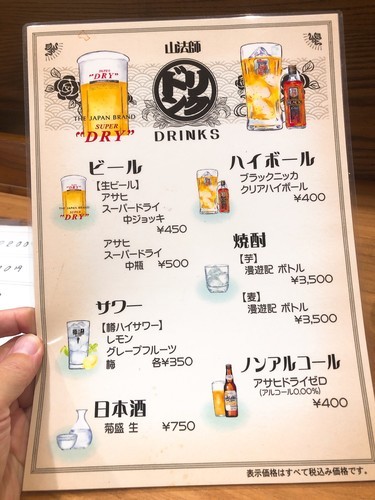 山法師
SUPER
"DRY"
THE JAPAN BRAND
SUPER
"DRY"
ドリンク
DRINKS
ビール
【生ビール】
アサヒ
スーパードライ
中ジョッキ
¥450
アサヒ
スーパードライ
中瓶 ¥500
サワー
【樽ハイサワー】
レモン
グレープフルーツ
梅 各¥350
日本酒
菊盛 生 ¥750
ハイボール
ブラックニッカ
クリアハイボール
¥400
焼酎
【芋】
漫遊記 ボトル
¥3,500
【麦】
漫遊記 ボトル
¥3,500
ノンアルコール
アサヒドライゼロ
(アルコール0.00%)
¥400
表示価格はすべて税込み価格です。